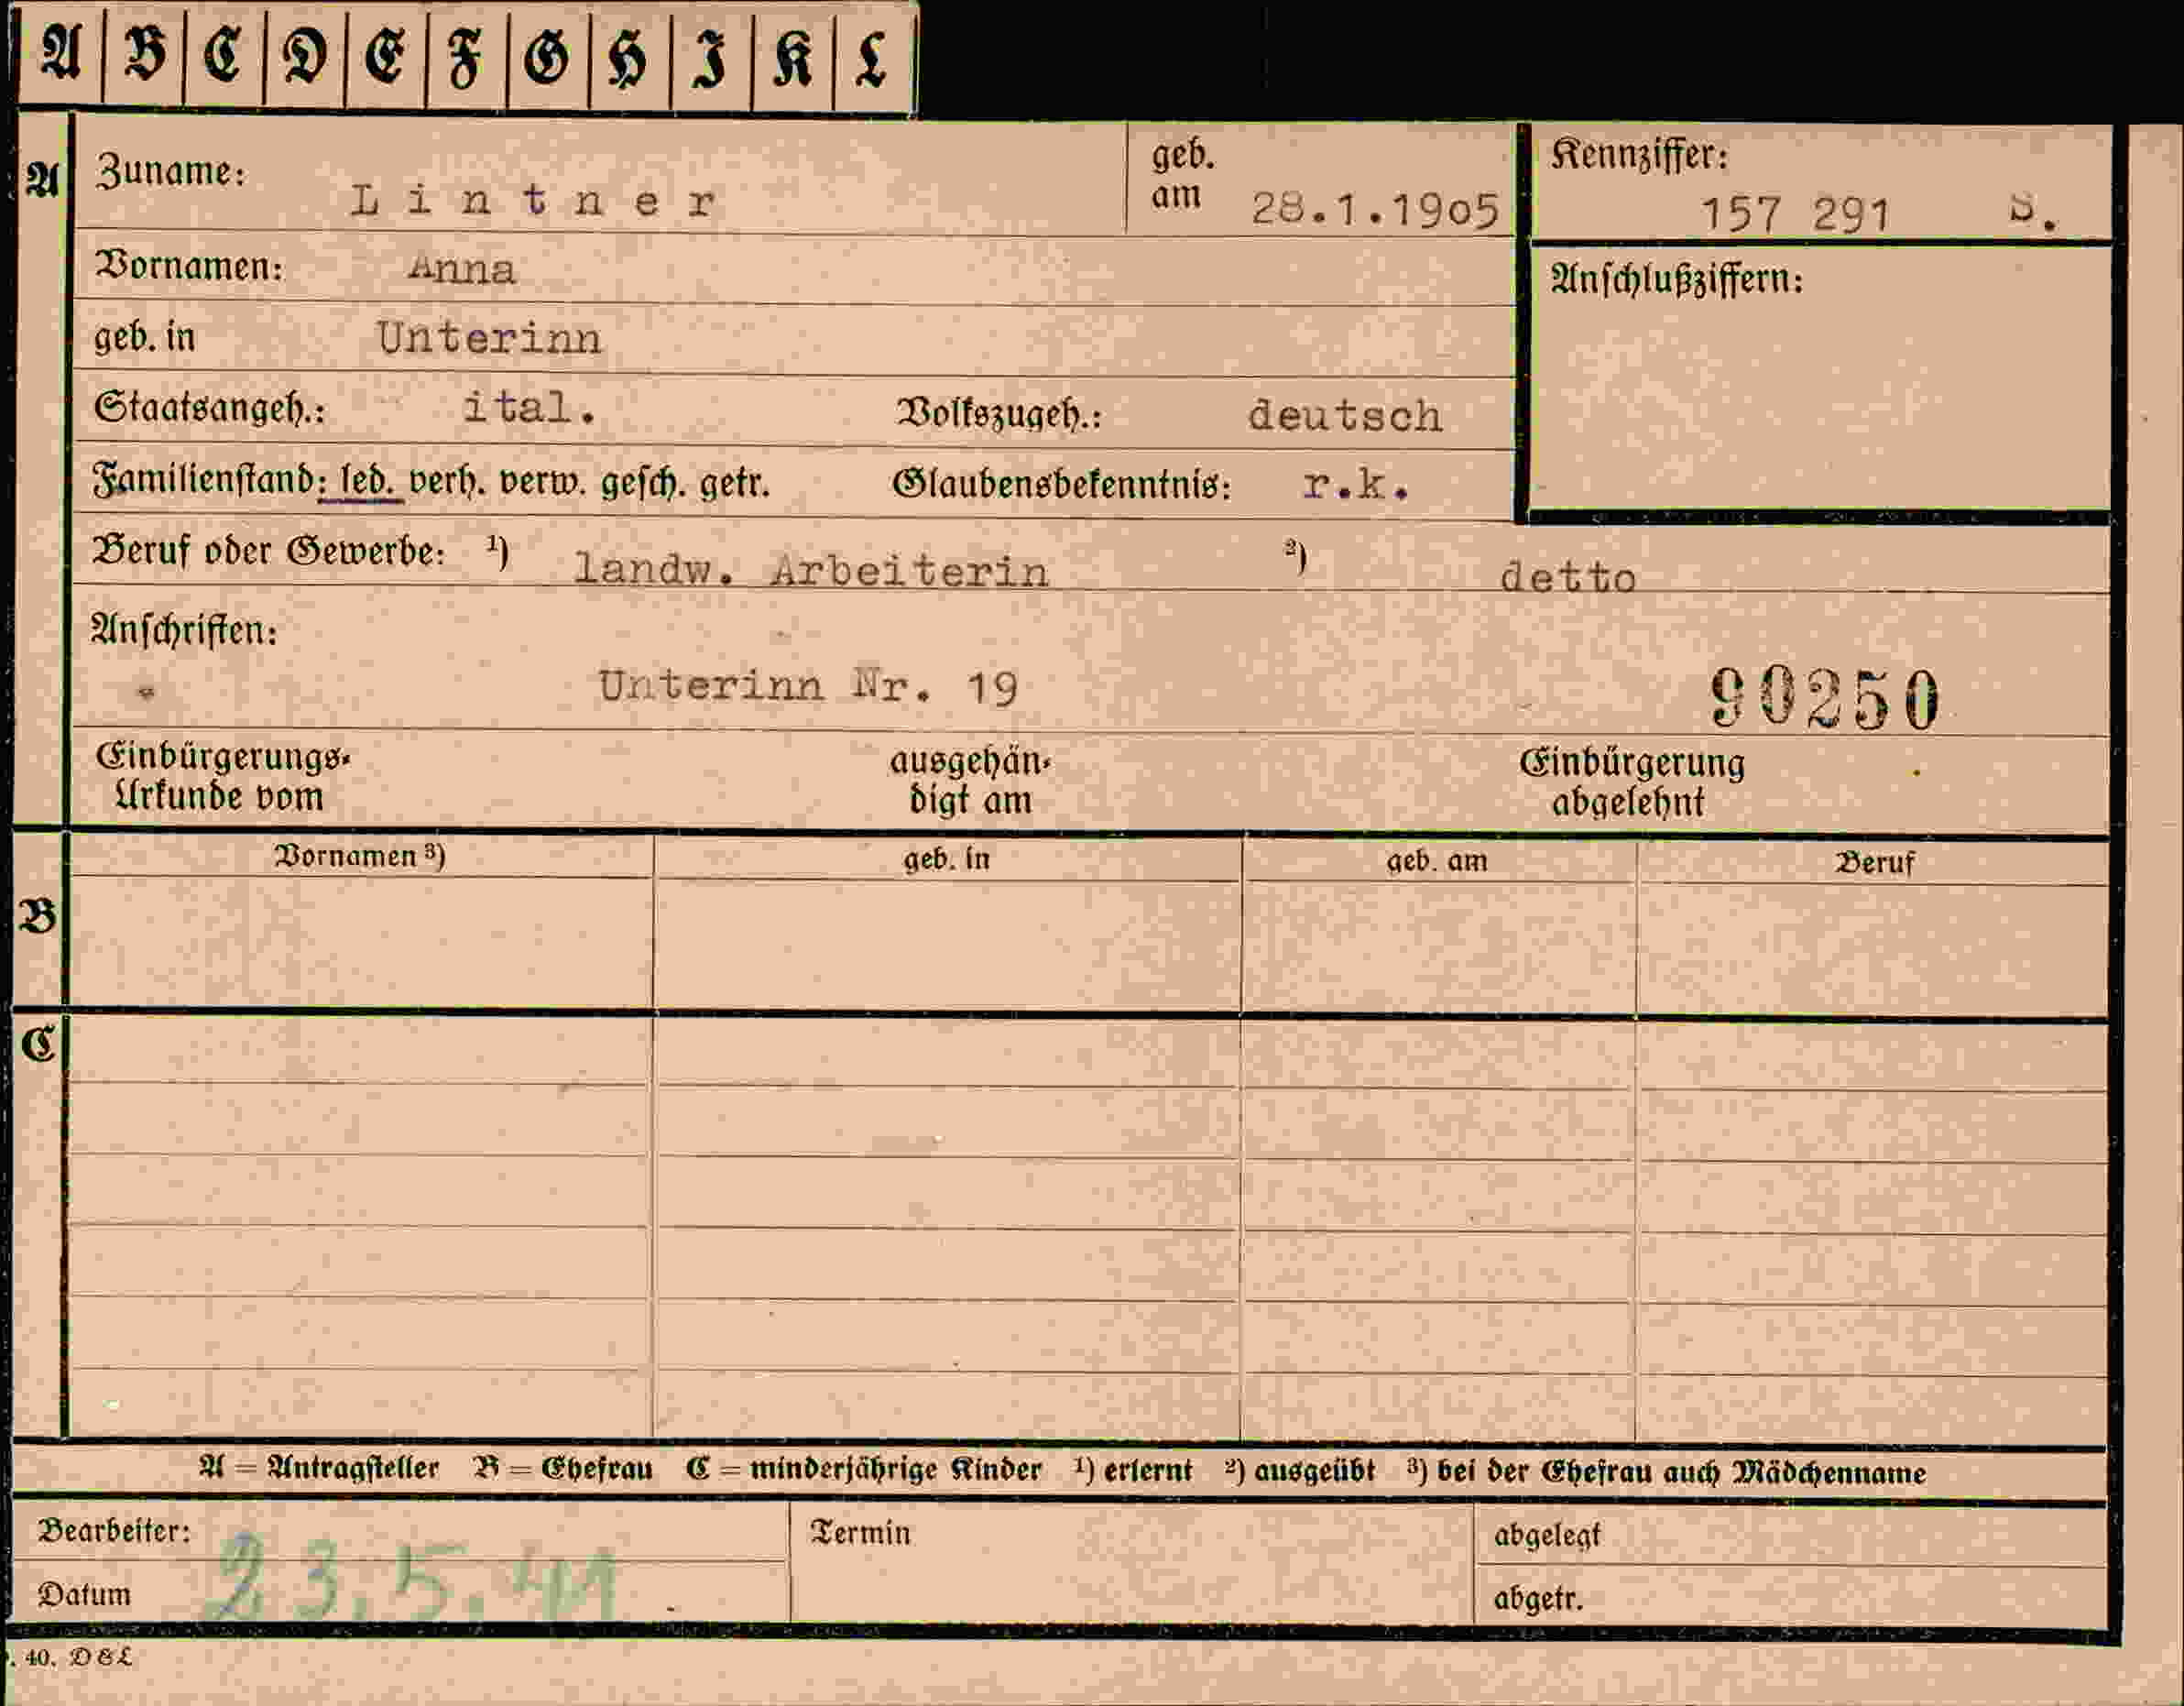 A B C D E F G H I K L
A Zuname: Lintner geb. am 28.1.1905 Kennziffer: 157 291 S.
Vornamen: Anna Anschlußziffern:
geb. in Unterinn
Staatsangeh.: ital. Volkszugeh.: deutsch
Familienstand: led. verh. verw. gesch. getr. Glaubensbekenntnis: r.k.
Beruf oder Gewerbe: ¹) landw. Arbeiterin ²) detto
Anschriften:
Unterinn Nr. 19 90250
Einbürgerungs- ausgehän- Einbürgerung
Urkunde vom digt am abgelehnt
Vornamen ³) geb. in geb. am Beruf
B
C
A = Antragsteller B = Ehefrau C = minderjährige Kinder ¹) erlernt ²) ausgeübt ³) bei der Ehefrau auch Mädchenname
Bearbeiter: Termin abgelegt
Datum 23.5.41 abgetr.
. 40. D & L